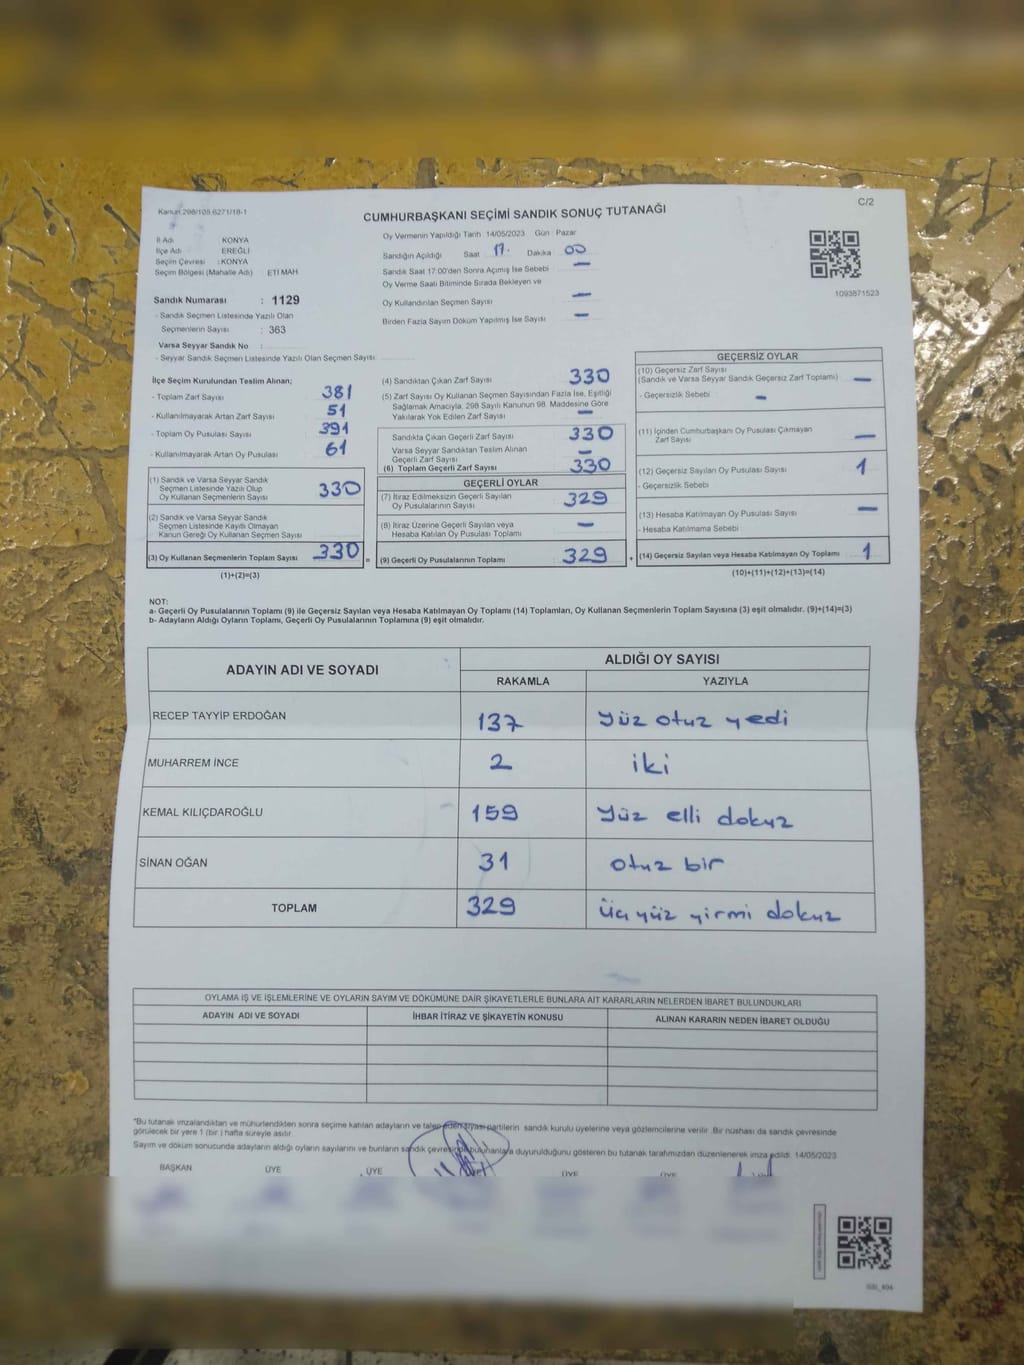 Kanun 298/105 6271/18-1
CUMHURBAŞKANI SEÇİMİ SANDIK SONUÇ TUTANAĞI
C/2
İl Adı KONYA
İlçe Adı EREĞLİ
Seçim Çevresi : KONYA
Seçim Bölgesi (Mahalle Adı) ETİ MAH
Sandık Numarası : 1129
- Sandık Seçmen Listesinde Yazılı Olan
Seçmenlerin Sayısı : 363
Varsa Seyyar Sandık No :
- Seyyar Sandık Seçmen Listesinde Yazılı Olan Seçmen Sayısı
Oy Vermenin Yapıldığı Tarih 14/05/2023 Gün Pazar
Sandığın Açıldığı Saat 17. Dakika 00
Sandık Saat 17:00'den Sonra Açılmış İse Sebebi —
Oy Verme Saati Bitiminde Sırada Bekleyen ve
Oy Kullandırılan Seçmen Sayısı —
Birden Fazla Sayım Döküm Yapılmış İse Sayısı —
1093871523
İlçe Seçim Kurulundan Teslim Alınan;
- Toplam Zarf Sayısı 381
- Kullanılmayarak Artan Zarf Sayısı 51
- Toplam Oy Pusulası Sayısı 391
- Kullanılmayarak Artan Oy Pusulası 61
(1) Sandık ve Varsa Seyyar Sandık
Seçmen Listesinde Yazılı Olup
Oy Kullanan Seçmenlerin Sayısı 330
(2) Sandık ve Varsa Seyyar Sandık
Seçmen Listesinde Kayıtlı Olmayan
Kanun Gereği Oy Kullanan Seçmen Sayısı
(3) Oy Kullanan Seçmenlerin Toplam Sayısı 330 =
(1)+(2)=(3)
(4) Sandıktan Çıkan Zarf Sayısı 330
(5) Zarf Sayısı Oy Kullanan Seçmen Sayısından Fazla İse, Eşitliği
Sağlamak Amacıyla, 298 Sayılı Kanunun 98. Maddesine Göre
Yakılarak Yok Edilen Zarf Sayısı —
Sandıkta Çıkan Geçerli Zarf Sayısı 330
Varsa Seyyar Sandıktan Teslim Alınan
Geçerli Zarf Sayısı —
(6) Toplam Geçerli Zarf Sayısı 330
GEÇERLİ OYLAR
(7) İtiraz Edilmeksizin Geçerli Sayılan
Oy Pusulalarının Sayısı 329
(8) İtiraz Üzerine Geçerli Sayılan veya
Hesaba Katılan Oy Pusulası Toplamı —
(9) Geçerli Oy Pusulalarının Toplamı 329 +
GEÇERSİZ OYLAR
(10) Geçersiz Zarf Sayısı
(Sandık ve Varsa Seyyar Sandık Geçersiz Zarf Toplamı) —
- Geçersizlik Sebebi —
(11) İçinden Cumhurbaşkanı Oy Pusulası Çıkmayan
Zarf Sayısı —
(12) Geçersiz Sayılan Oy Pusulası Sayısı 1
- Geçersizlik Sebebi
(13) Hesaba Katılmayan Oy Pusulası Sayısı —
- Hesaba Katılmama Sebebi
(14) Geçersiz Sayılan veya Hesaba Katılmayan Oy Toplamı 1
(10)+(11)+(12)+(13)=(14)
NOT:
a- Geçerli Oy Pusulalarının Toplamı (9) ile Geçersiz Sayılan veya Hesaba Katılmayan Oy Toplamı (14) Toplamları, Oy Kullanan Seçmenlerin Toplam Sayısına (3) eşit olmalıdır. (9)+(14)=(3)
b- Adayların Aldığı Oyların Toplamı, Geçerli Oy Pusulalarının Toplamına (9) eşit olmalıdır.
ADAYIN ADI VE SOYADI
ALDIĞI OY SAYISI
RAKAMLA YAZIYLA
RECEP TAYYİP ERDOĞAN 137 yüz otuz yedi
MUHARREM İNCE 2 iki
KEMAL KILIÇDAROĞLU 159 yüz elli dokuz
SİNAN OĞAN 31 otuz bir
TOPLAM 329 üç yüz yirmi dokuz
OYLAMA İŞ VE İŞLEMLERİNE VE OYLARIN SAYIM VE DÖKÜMÜNE DAİR ŞİKAYETLERLE BUNLARA AİT KARARLARIN NELERDEN İBARET BULUNDUKLARI
ADAYIN ADI VE SOYADI İHBAR İTİRAZ VE ŞİKAYETİN KONUSU ALINAN KARARIN NEDEN İBARET OLDUĞU
*Bu tutanak imzalandıktan ve mühürlendikten sonra seçime katılan adayların ve talep eden siyasi partilerin sandık kurulu üyelerine veya gözlemcilerine verilir. Bir nüshası da sandık çevresinde
görülecek bir yere 1 (bir) hafta süreyle asılır.
Sayım ve döküm sonucunda adayların aldığı oyların sayılarını ve bunların sandık çevresinde bulunanlara duyurulduğunu gösteren bu tutanak tarafımızdan düzenlenerek imza edildi. 14/05/2023
BAŞKAN ÜYE ÜYE ÜYE ÜYE